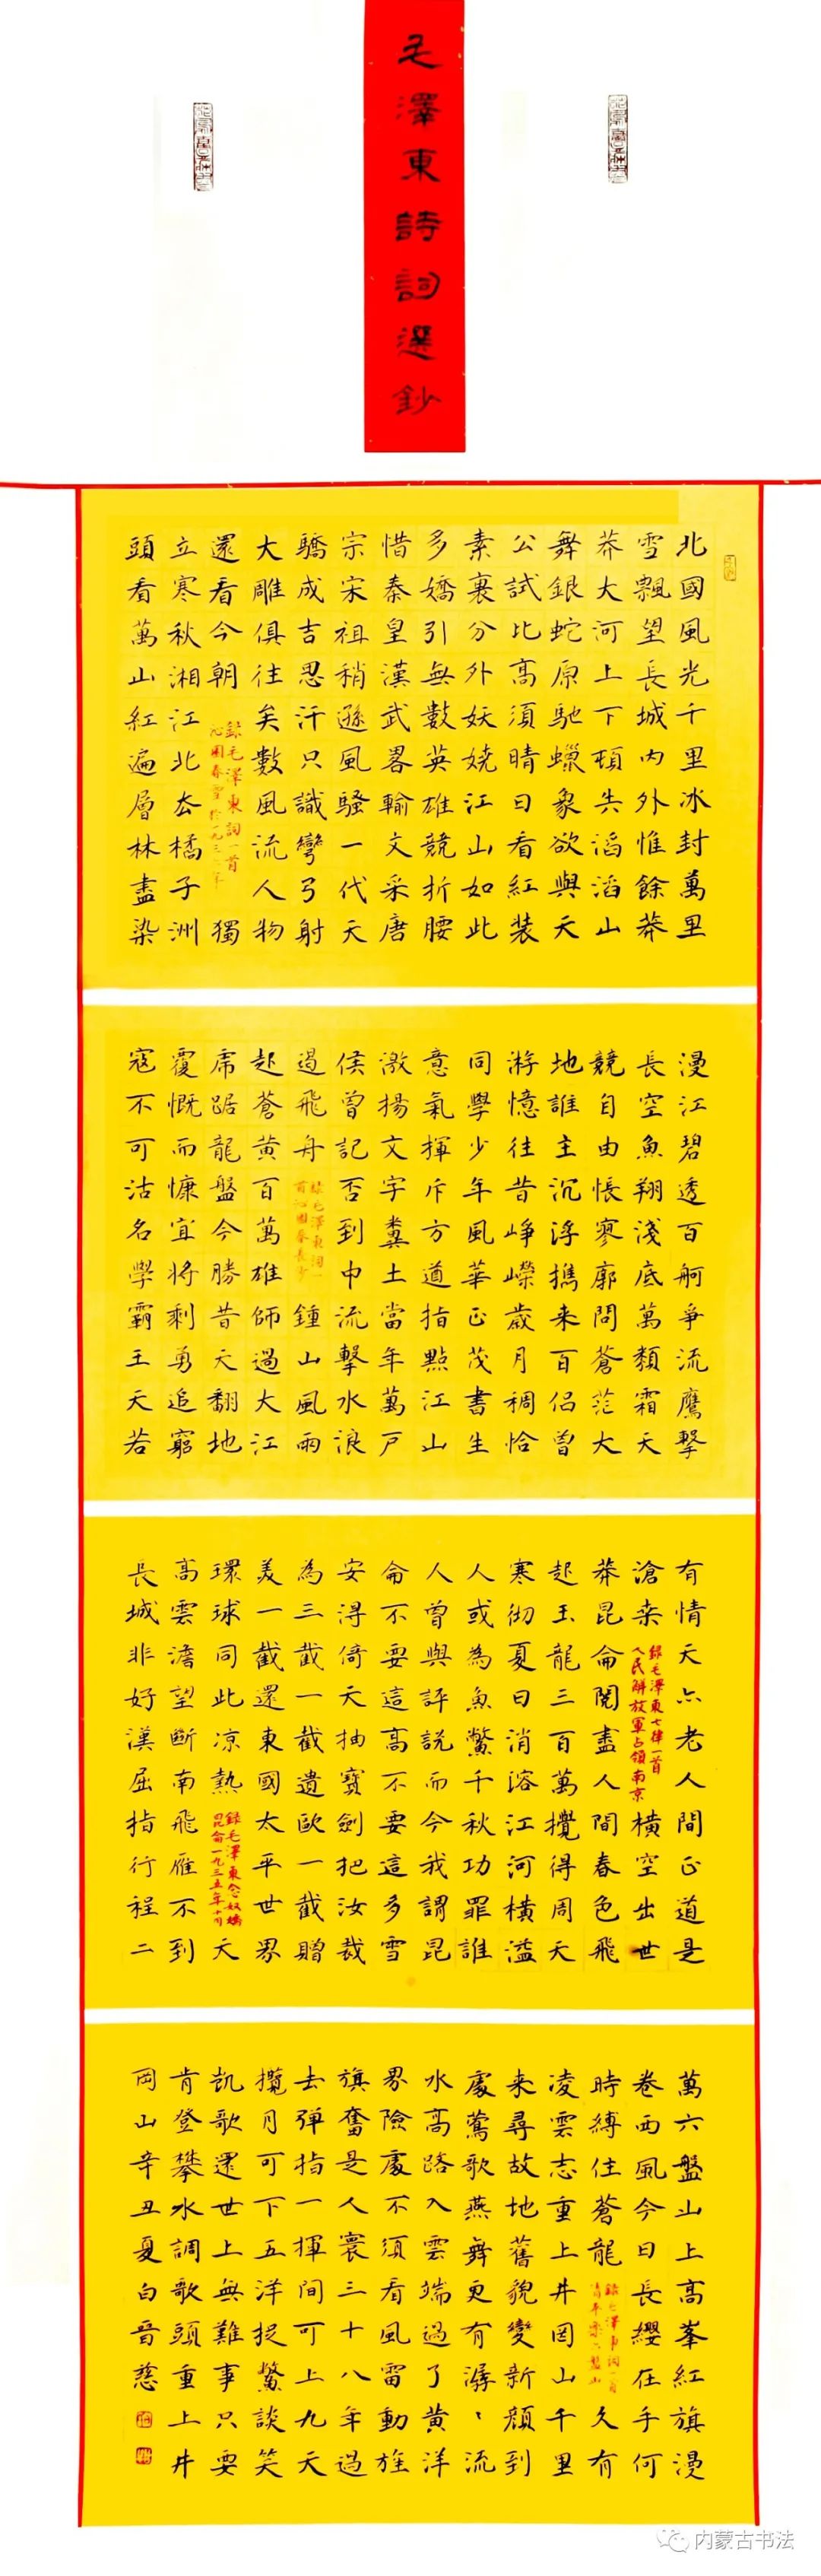 毛澤東詩詞選鈔
北國風光千里冰封萬里
雪飄望長城內外惟餘莽
莽大河上下頓失滔滔山
舞銀蛇原馳蠟象欲與天
公試比高須晴日看紅裝
素裹分外妖嬈江山如此
多嬌引無數英雄競折腰
惜秦皇漢武畧輸文采唐
宗宋祖稍遜風騷一代天
驕成吉思汗只識彎弓射
大雕俱往矣數風流人物
還看今朝 錄毛澤東詞一首沁園春雪於一九三六年 獨
立寒秋湘江北去橘子洲
頭看萬山紅遍層林盡染
漫江碧透百舸爭流鷹擊
長空魚翔淺底萬類霜天
競自由悵寥廓問蒼茫大
地誰主沉浮攜来百侣曾
游憶往昔崢嶸歲月稠恰
同學少年風華正茂書生
意氣揮斥方遒指點江山
激揚文字糞土當年萬戶
侯曾記否到中流擊水浪
遏飛舟 錄毛澤東詞一首沁園春長沙 鍾山風雨
起蒼黃百萬雄師過大江
虎踞龍盤今勝昔天翻地
覆慨而慷宜將剩勇追窮
寇不可沽名學霸王天若
有情天亦老人間正道是
滄桑 錄毛澤東七律一首人民解放軍占領南京 橫空出世
莽昆侖閱盡人間春色飛
起玉龍三百萬攪得周天
寒彻夏日消溶江河橫溢
人或為魚鱉千秋功罪誰
人曾與評說而今我謂昆
侖不要這高不要這多雪
安得倚天抽寶劍把汝裁
為三截一截遺歐一截贈
美一截還東國太平世界
環球同此涼熱 錄毛澤東念奴嬌昆侖一九三五年十月 天
高雲澹望斷南飛雁不到
長城非好漢屈指行程二
萬六盤山上高峯紅旗漫
卷西風今日長纓在手何
時縛住蒼龍 錄毛澤東詞一首清平樂六盤山 久有
凌雲志重上井岡山千里
来尋故地舊貌變新顏到
處鶯歌燕舞更有潺〻流
水高路入雲端過了黃洋
界險處不須看風雷動旌
旗奮是人寰三十八年過
去彈指一揮間可上九天
攬月可下五洋捉鱉談笑
凱歌還世上無難事只要
肯登攀水調歌頭重上井
岡山辛丑夏白晉慈
内蒙古书法